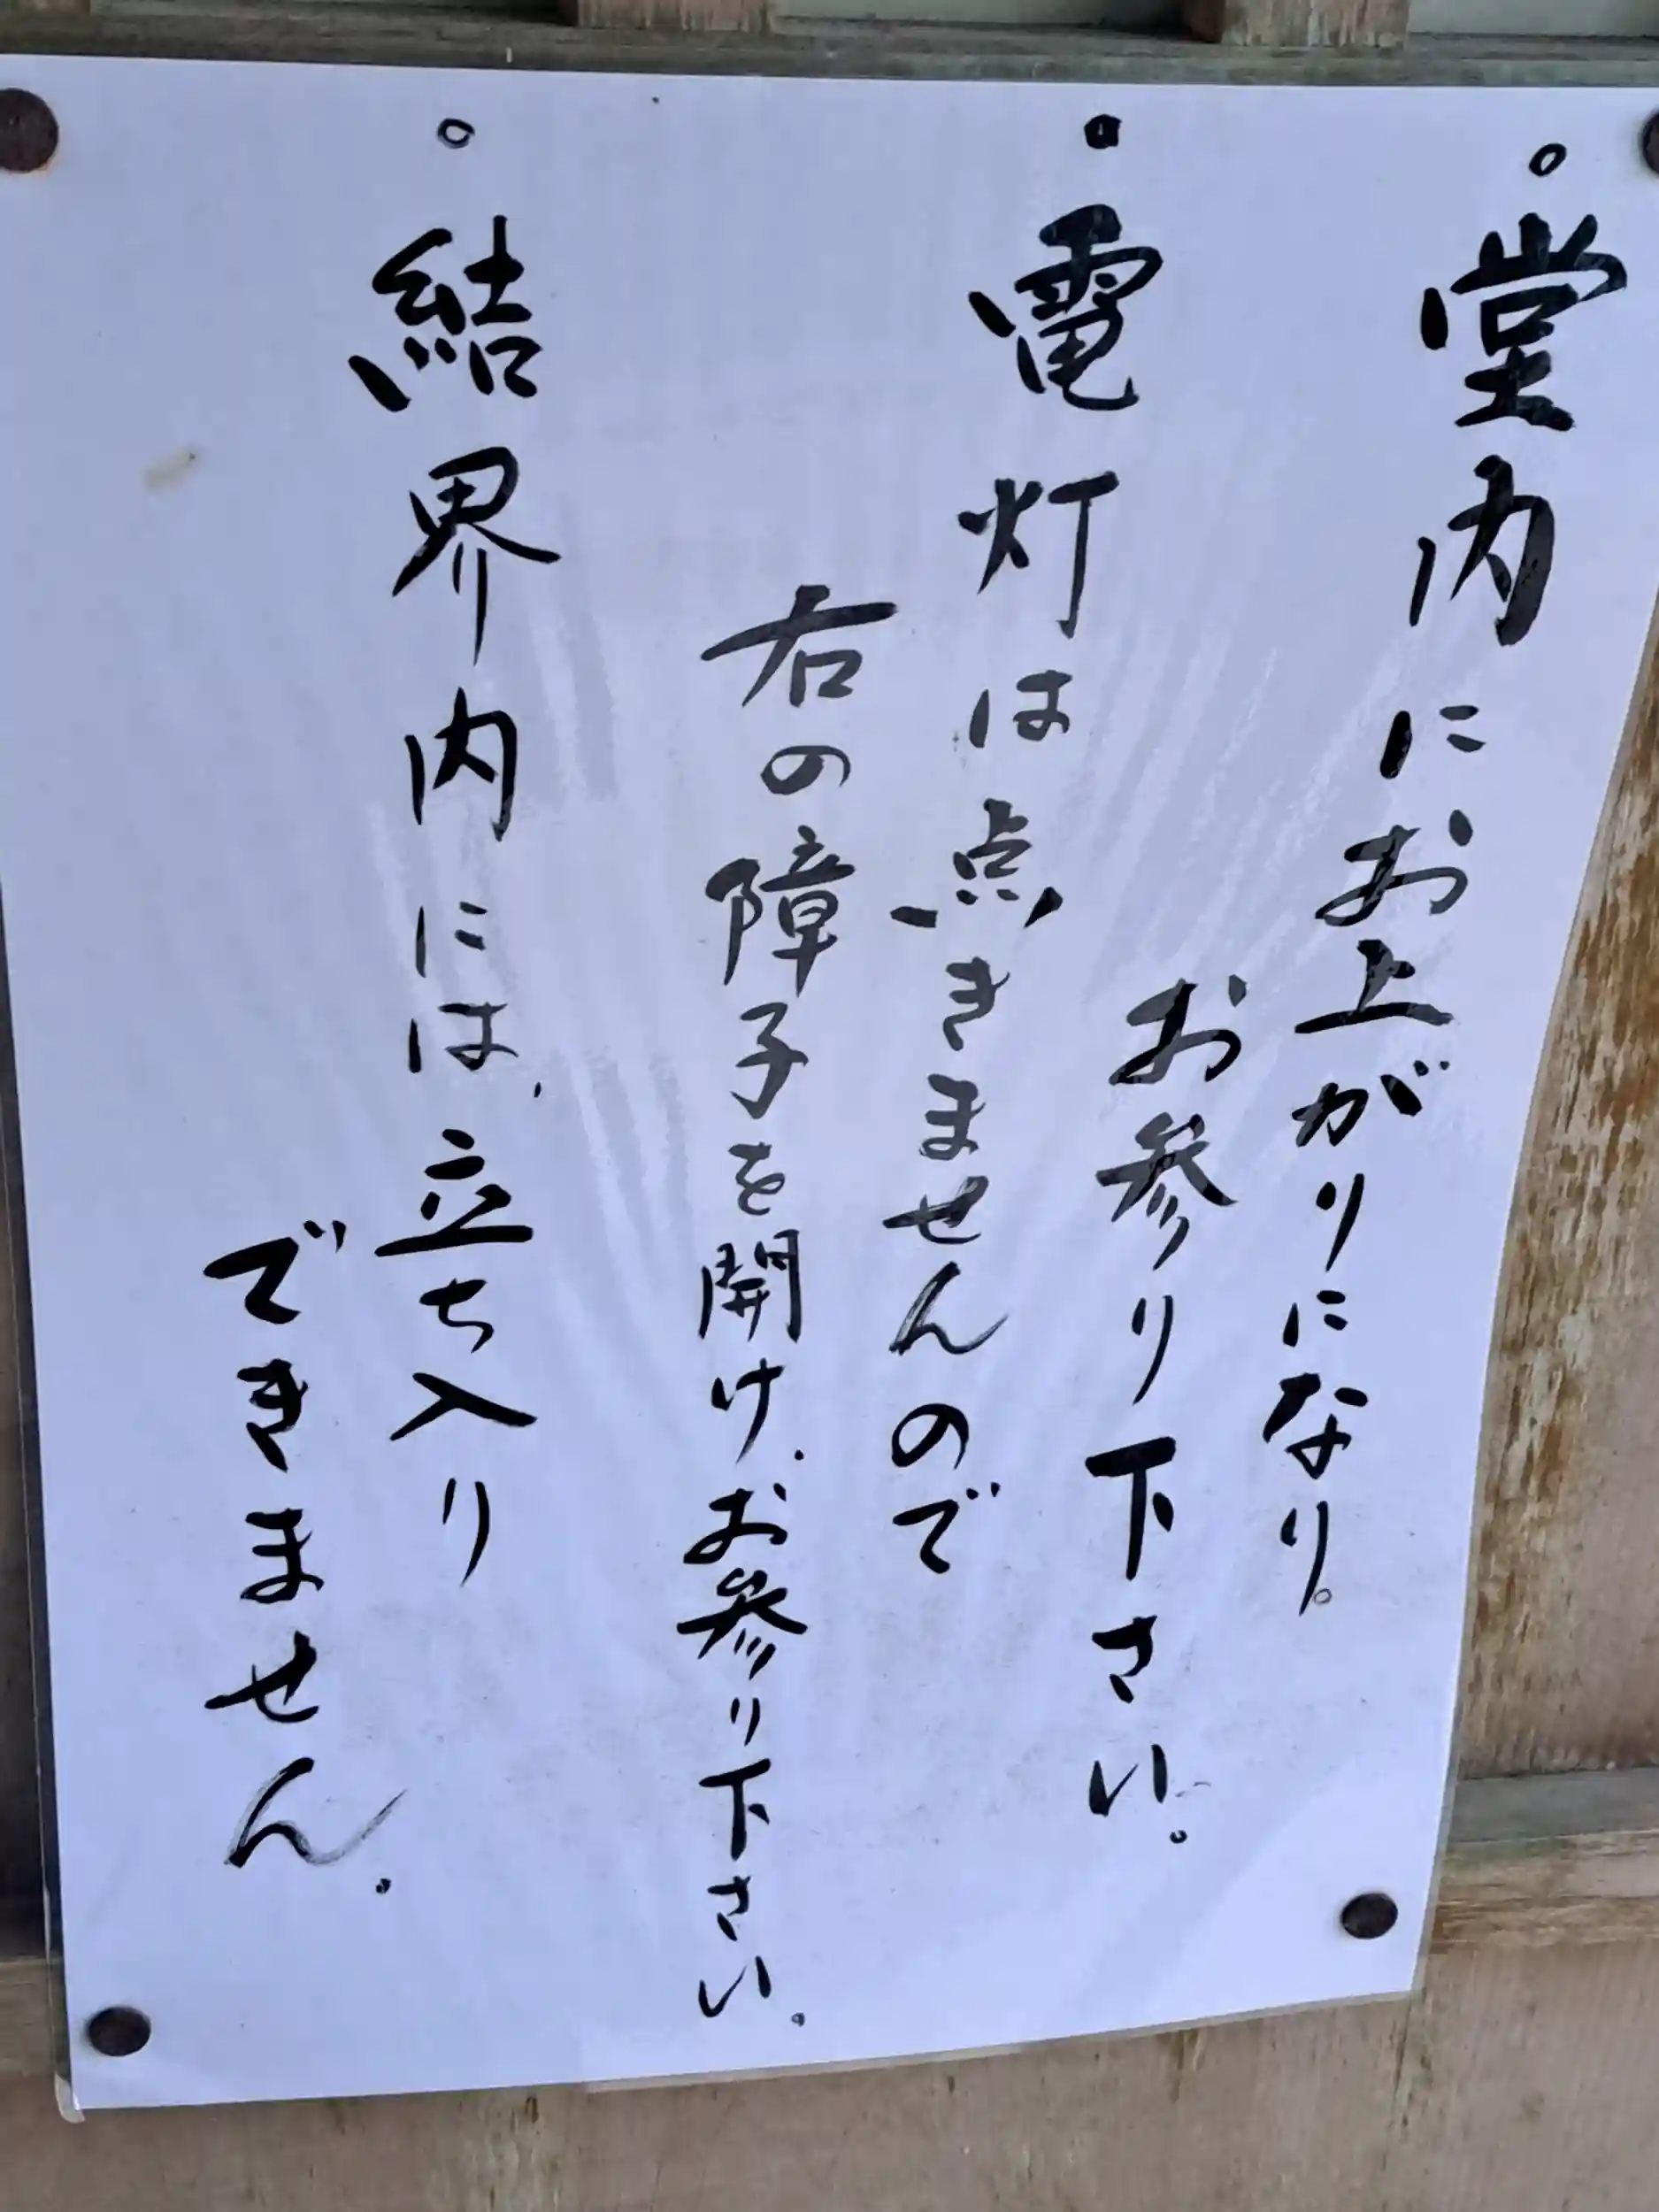 。堂内にお上がりになり。
お参り下さい。
。電灯は点きませんので
右の障子を開け、お参り下さい。
。結界内には、立ち入り
できません。